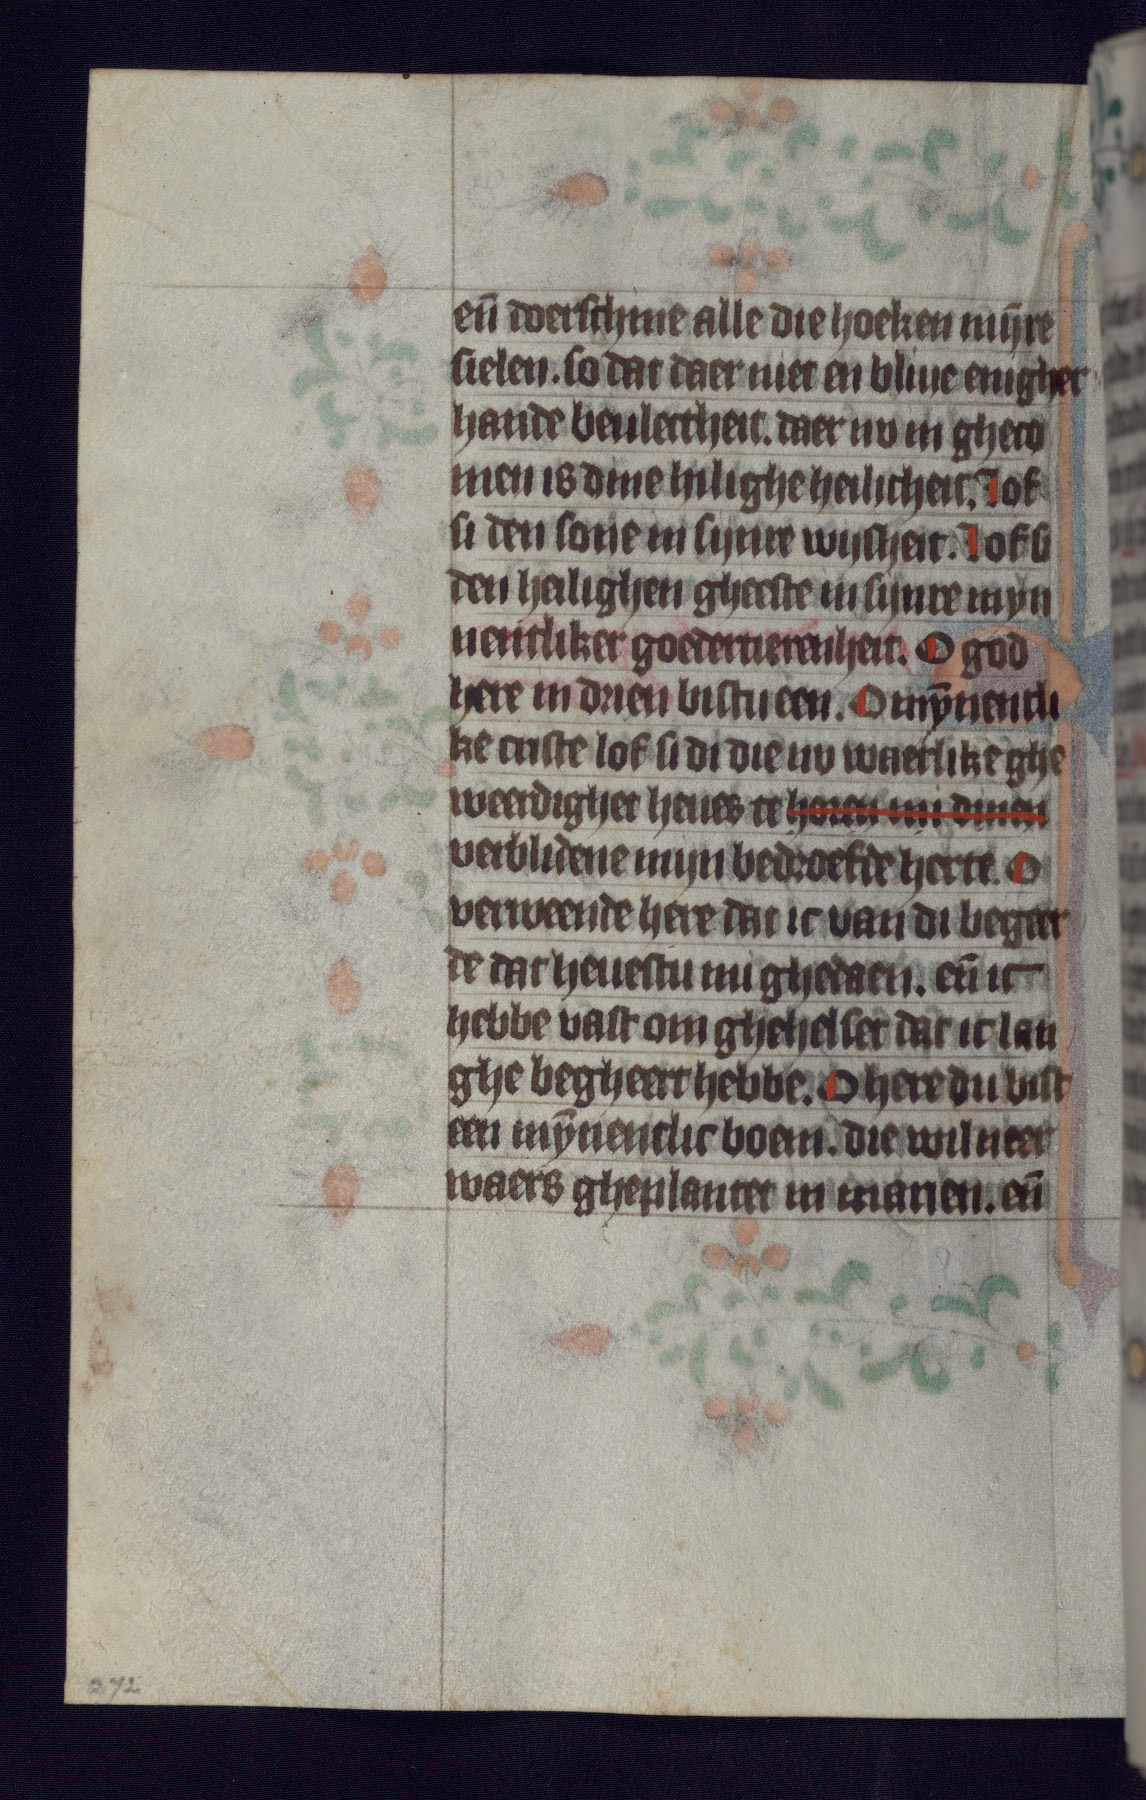 en̄ doerschine alle die hoeken mȳre
sielen. so dat daer niet en bliue enigher
hande beulectheit. daer nv in gheco
men is dine hilighe heilicheit. Lof
si den sone in sijnre wijsheit. Lof si
den heilighen gheeste in sijnre myn
nentliker goedertierenheit. O god
here in drien bistu een. O mȳnentli
ke criste lof si di die nv waerlike ghe
weerdighet heues te horen mi dinen
verblidene mijn bedroefde herte. O
verweende here dat ic van di begeer
de dat heuestu mi ghedaen. en̄ ic
hebbe vast om ghehelset dat ic lan
ghe begheert hebbe. O here du bist
een mȳnentlic boem. die wilneer
waers gheplantet in marien. en̄
272